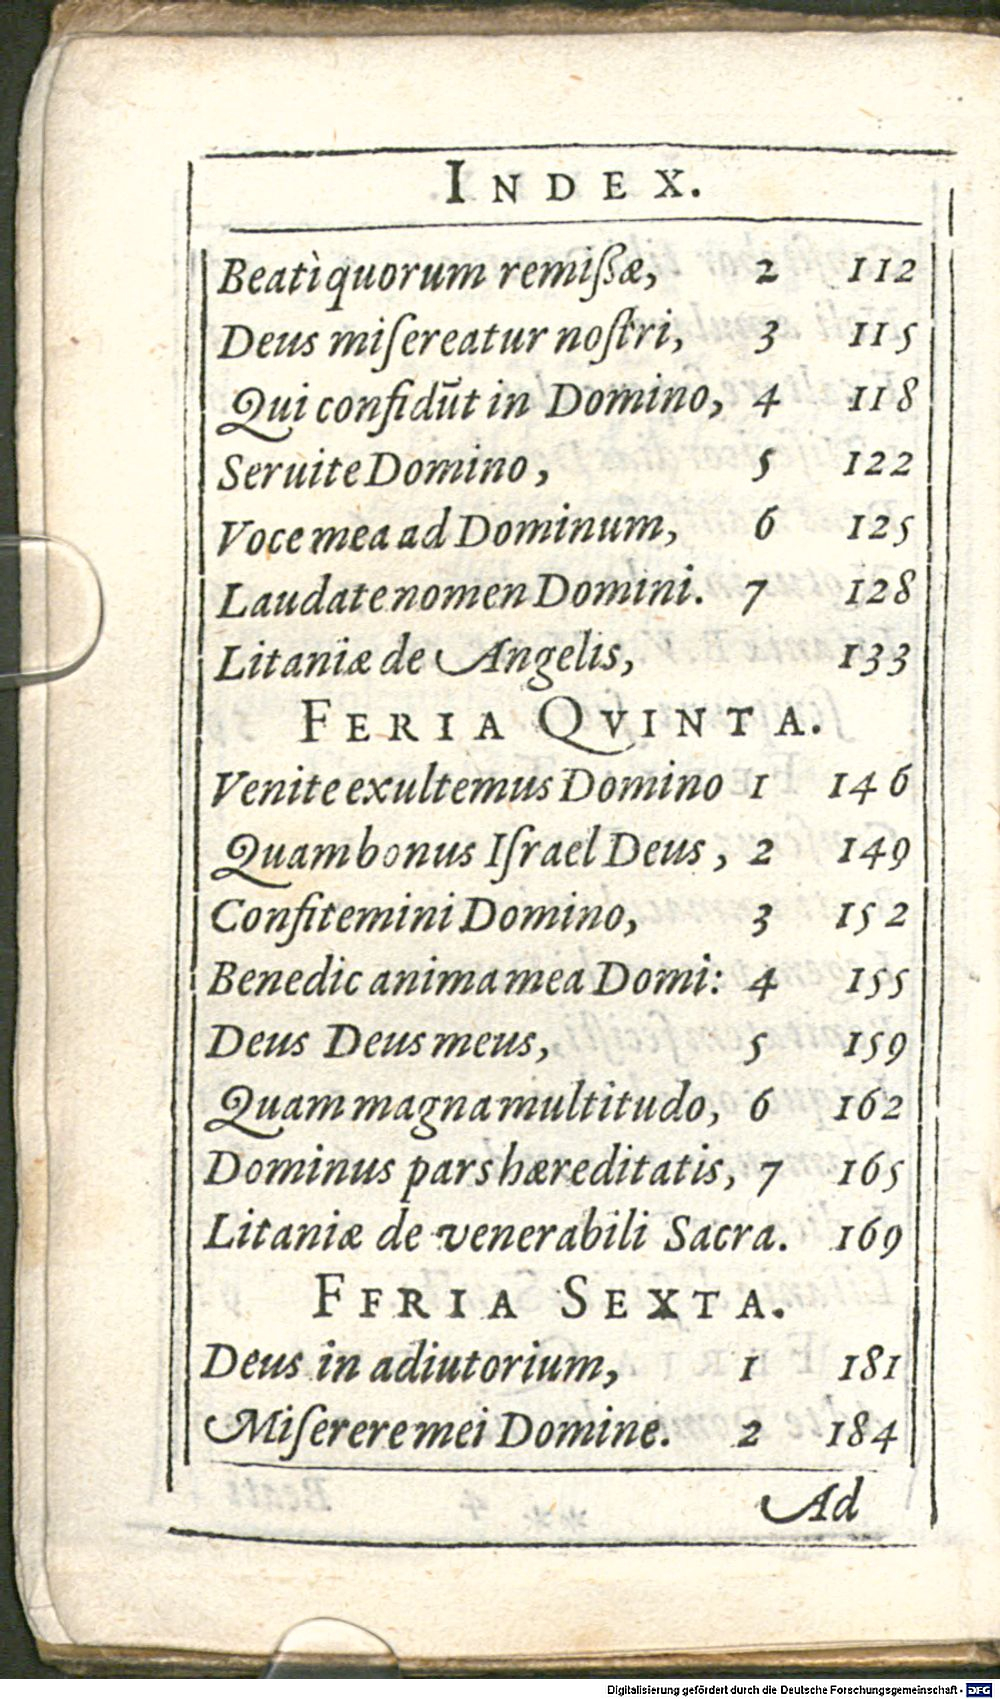 INDEX.
Beatì quorum remißæ, 2 112
Deus miſereatur noſtri, 3 115
Qui confidūt in Domino, 4 118
Seruite Domino, 5 122
Voce mea ad Dominum, 6 125
Laudate nomen Domini. 7 128
Litaniæ de Angelis, 133
FERIA QVINTA.
Venite exultemus Domino 1 146
Quam bonus Iſrael Deus, 2 149
Confitemini Domino, 3 152
Benedic anima mea Domi: 4 155
Deus Deus meus, 5 159
Quam magna multitudo, 6 162
Dominus pars hæreditatis, 7 165
Litaniæ de venerabili Sacra. 169
FFRIA SEXTA.
Deus in adiutorium, 1 181
Miſerere mei Domine. 2 184
Ad
Digitalisierung gefördert durch die Deutsche Forschungsgemeinschaft - DFG